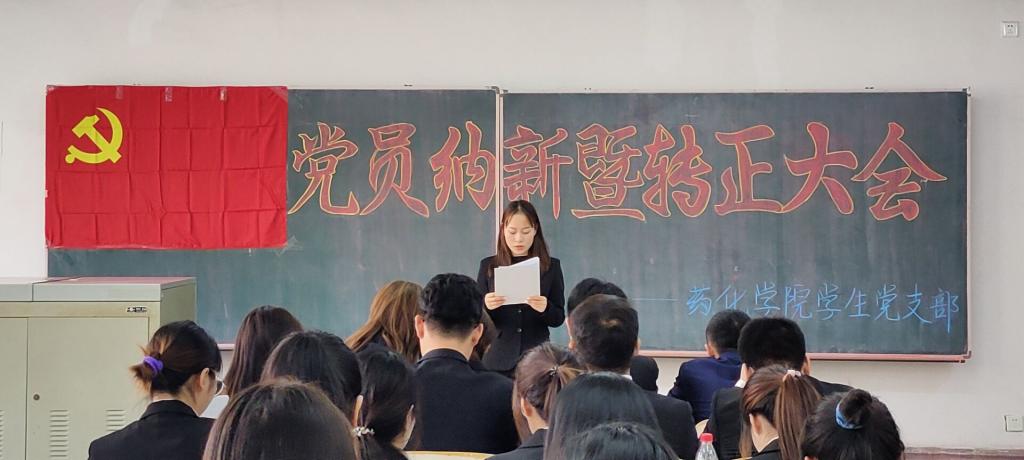 党员纳新暨转正大会
——药化学院学生党支部